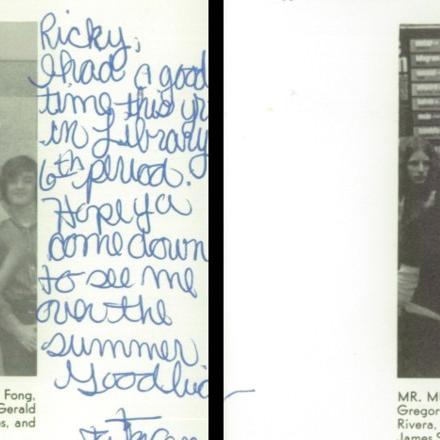 Ricky,
I had a good
time this yr
in Library
6th period.
Hope ya
come down
to see me
over the
summer
Good
Fong.
Gerald
s, and
MR. M
Gregor
Rivera,
James S